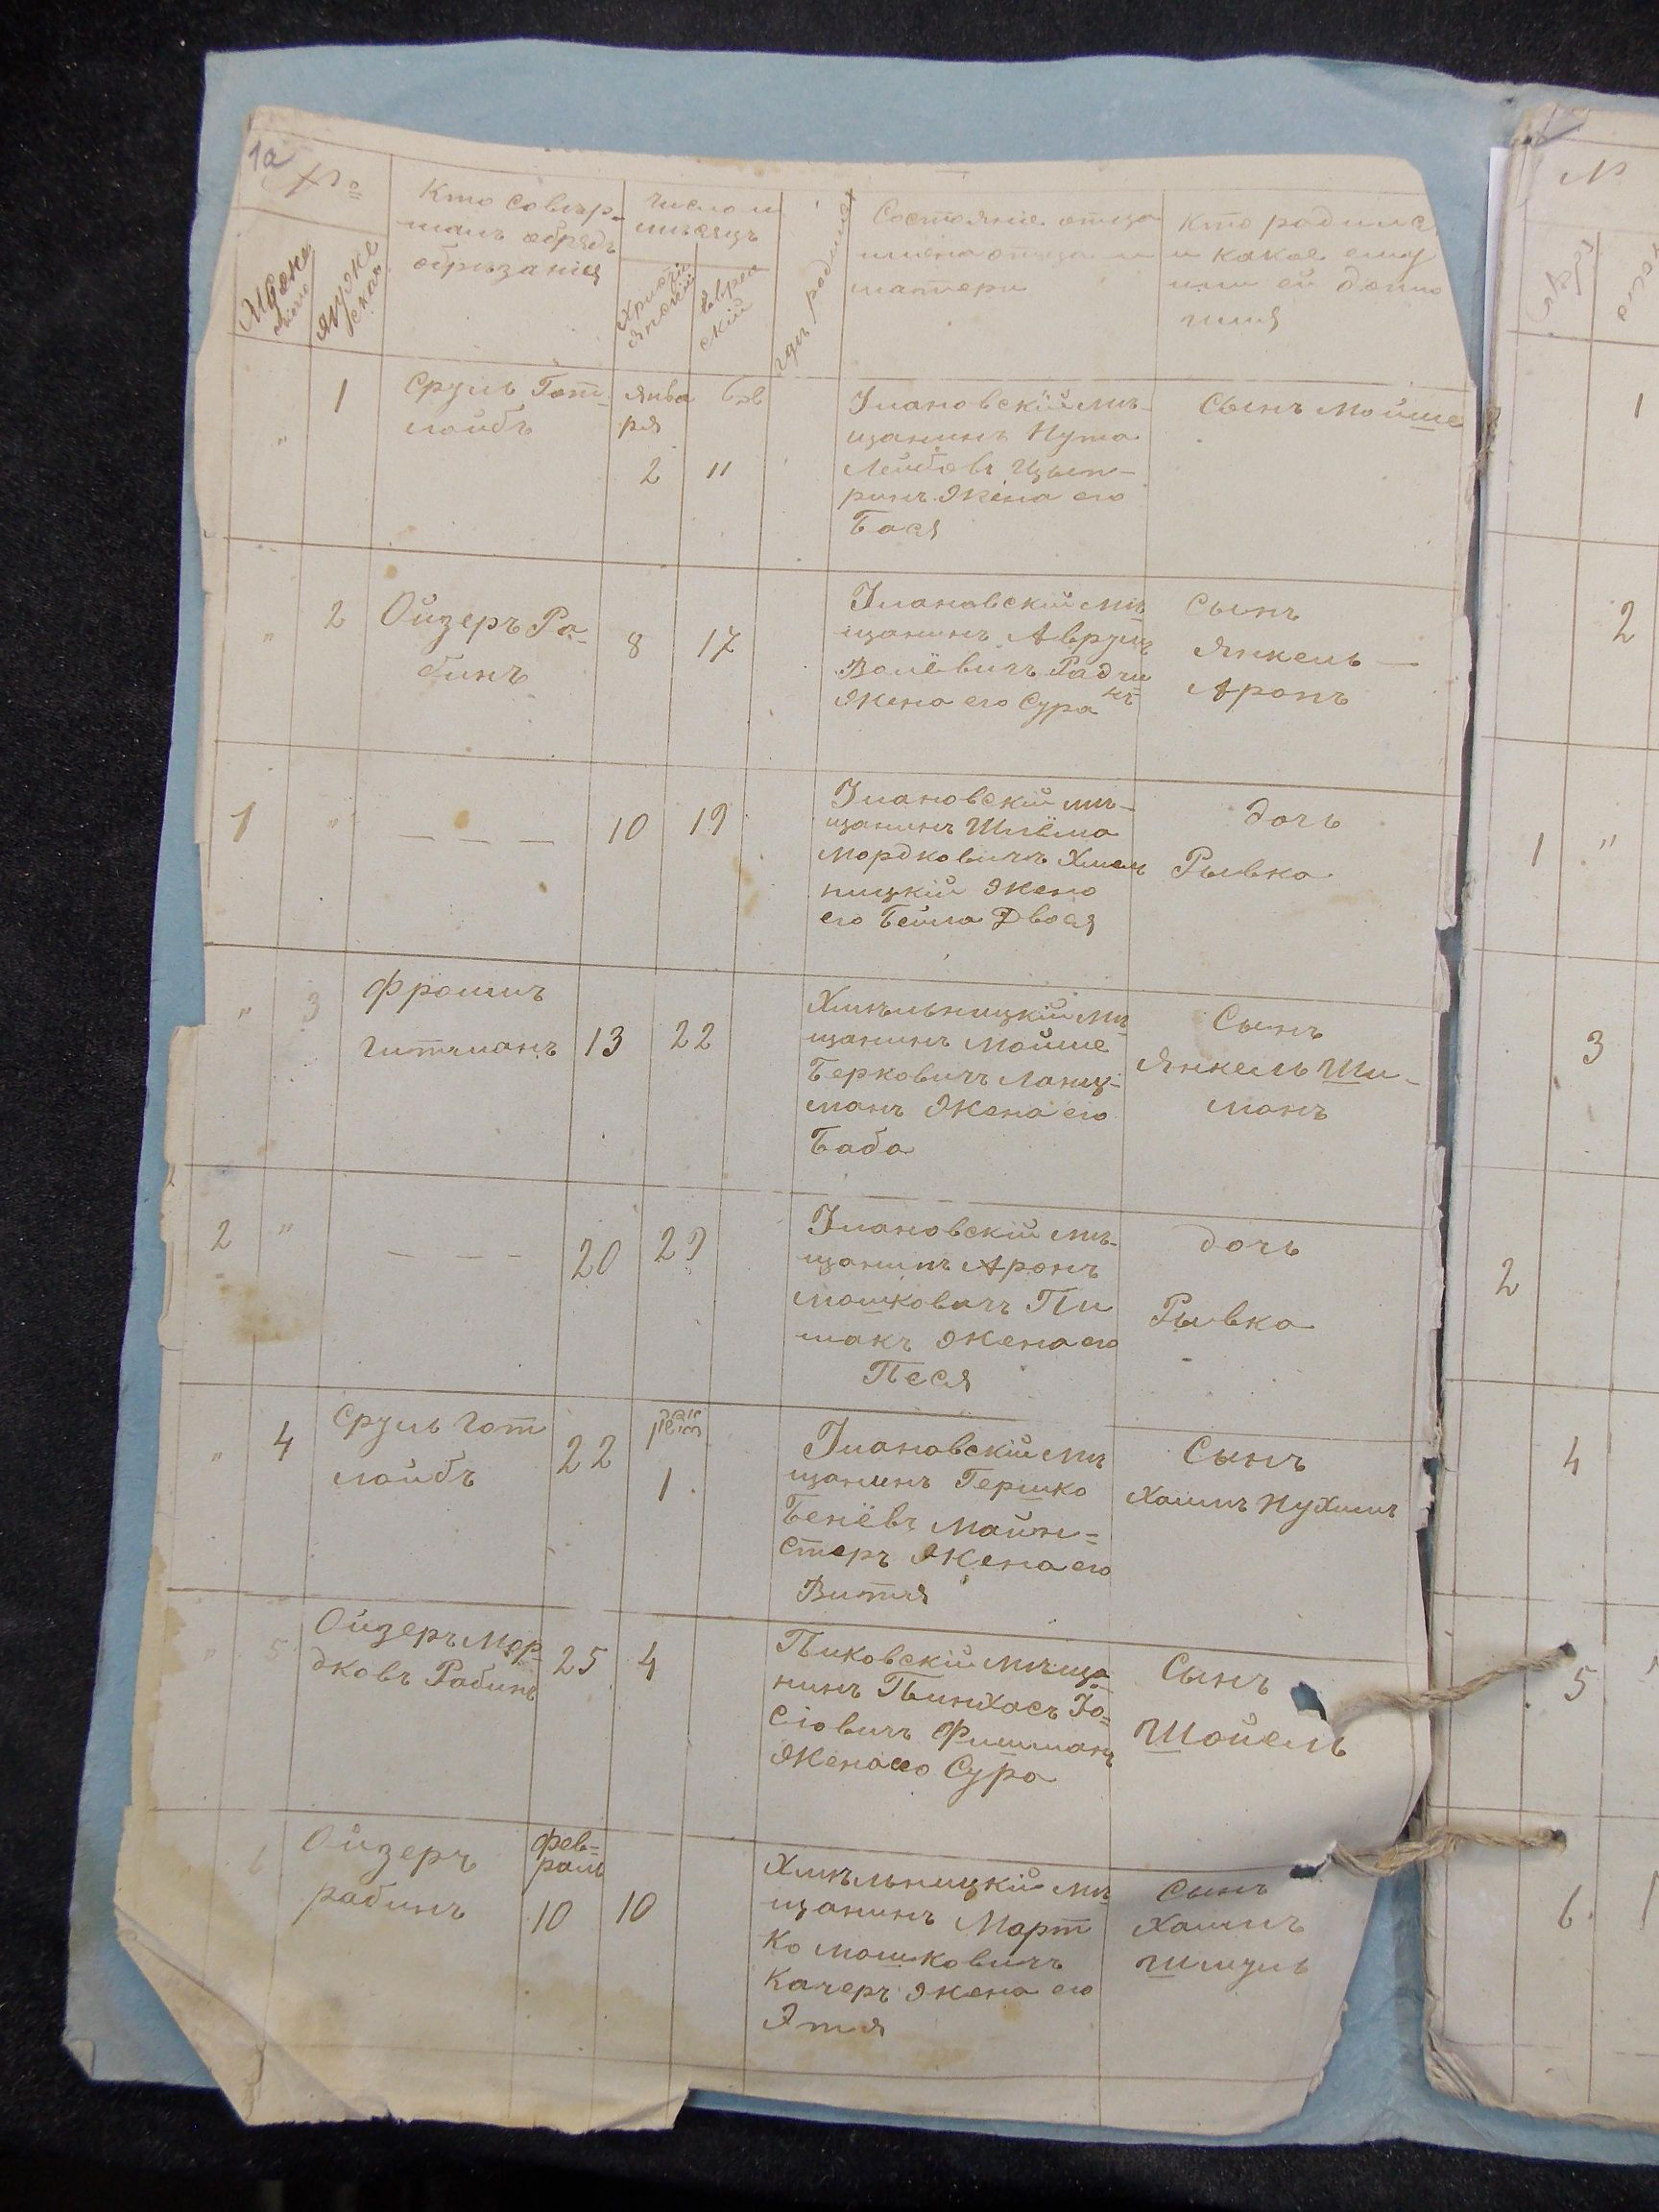 1а
№
Кто совер-
шалъ обрядъ
обрѣзанія
число и
мѣсяцъ
Христі
янскій
еврей
скій
гдѣ родился
Состояніе отца
имена отца и
матери
Кто родился
и какое ему
или ей дано
имя
Женс
каго
Мужс
ская
" 1
Сруль Гот-
лойбъ
Янва
ря
2
טבת
11
Улановскій мѣ-
щанинъ Нута
Лейбовъ Цып-
ринъ Жена его
Бася
Сынъ Мойше
" 2
Ойзеръ Ра-
бинъ
8 17
Улановскій мѣ
щанинъ Аврумъ
Волёвичъ Радчи
къ
Жена его Сура
Сынъ
Янкель —
Аронъ
1 "
— — —
10 19
Улановскій мѣ-
щанинъ Шлёма
Мордковичъ Хмель
ницкій Жена
его Бейла Двося
дочь
Рывка
" 3
Фроимъ
Гитманъ
13 22
Хмѣльницкій мѣ
щанинъ Мойше
Берковичъ Ланц-
манъ Жена его
Баба
Сынъ
Янкель Ши-
манъ
2 "
— — —
20 29
Улановскій мѣ-
щанинъ Аронъ
Мошковичъ Пи
макъ Жена его
Песя
дочь
Рывка
" 4
Сруль Гот
лойбъ
22
1
Улановскій мѣ
щанинъ Гершко
Бенёвъ Майн=
стеръ Жена его
Витя
Сынъ
Хаимъ Нухимъ
" 5
Ойзеръ Мор
дковъ Рабинъ
25 4
Пиковскій мѣща
нинъ Пынхасъ Іо=
сіовичъ Фишманъ
Жена его Сура
Сынъ
Шойель
6
Ойзеръ
рабинъ
фев=
раль
10 10
Хмѣльницкій мѣ
щанинъ Морт
ко Мошковичъ
Качеръ Жена его
Этя
Сынъ
Хаимъ
Шмуль
№
1
2
1 "
3
2
4
5
6